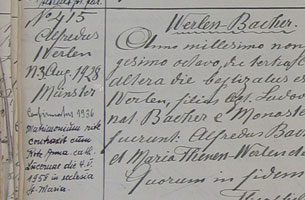 No 415
Alfredus
Werlen
N. 3 Aug. 1928
Münster
Confirmatus 1936
Matrimonium rite
contraxit cum
Anna cath.
Lucernae die 4. V.
1957 in ecclesia
S. Maria
Werlen-Bacher.
Anno millesimo non
gesimo octavo, die tertia
altera die baptizatus es
Werlen, filius Ludov
nat. Bacher e Monaste
fuerunt. Alfredus Bac
et Maria Thenen-Werlen de
Quorum in fidem